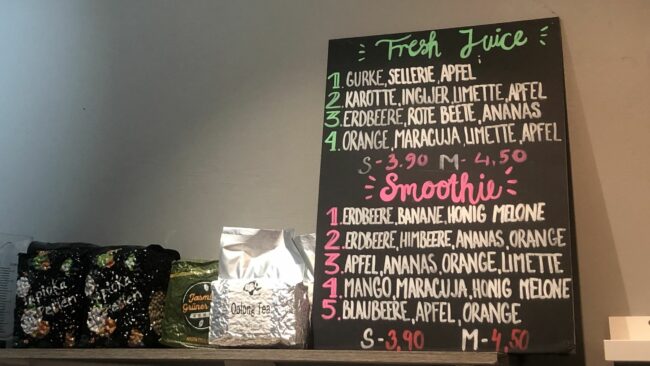 Fresh Juice
1. GURKE, SELLERIE, APFEL
2. KAROTTE, INGWER, LIMETTE, APFEL
3. ERDBEERE, ROTE BEETE, ANANAS
4. ORANGE, MARACUJA, LIMETTE, APFEL
S - 3.90 M - 4.50
Smoothie
1. ERDBEERE, BANANE, HONIG MELONE
2. ERDBEERE, HIMBEERE, ANANAS, ORANGE
3. APFEL, ANANAS, ORANGE, LIMETTE
4. MANGO, MARACUJA, HONIG MELONE
5. BLAUBEERE, APFEL, ORANGE
S - 3.90 M - 4.50
Oolong Tea
Jasmin
Grüner